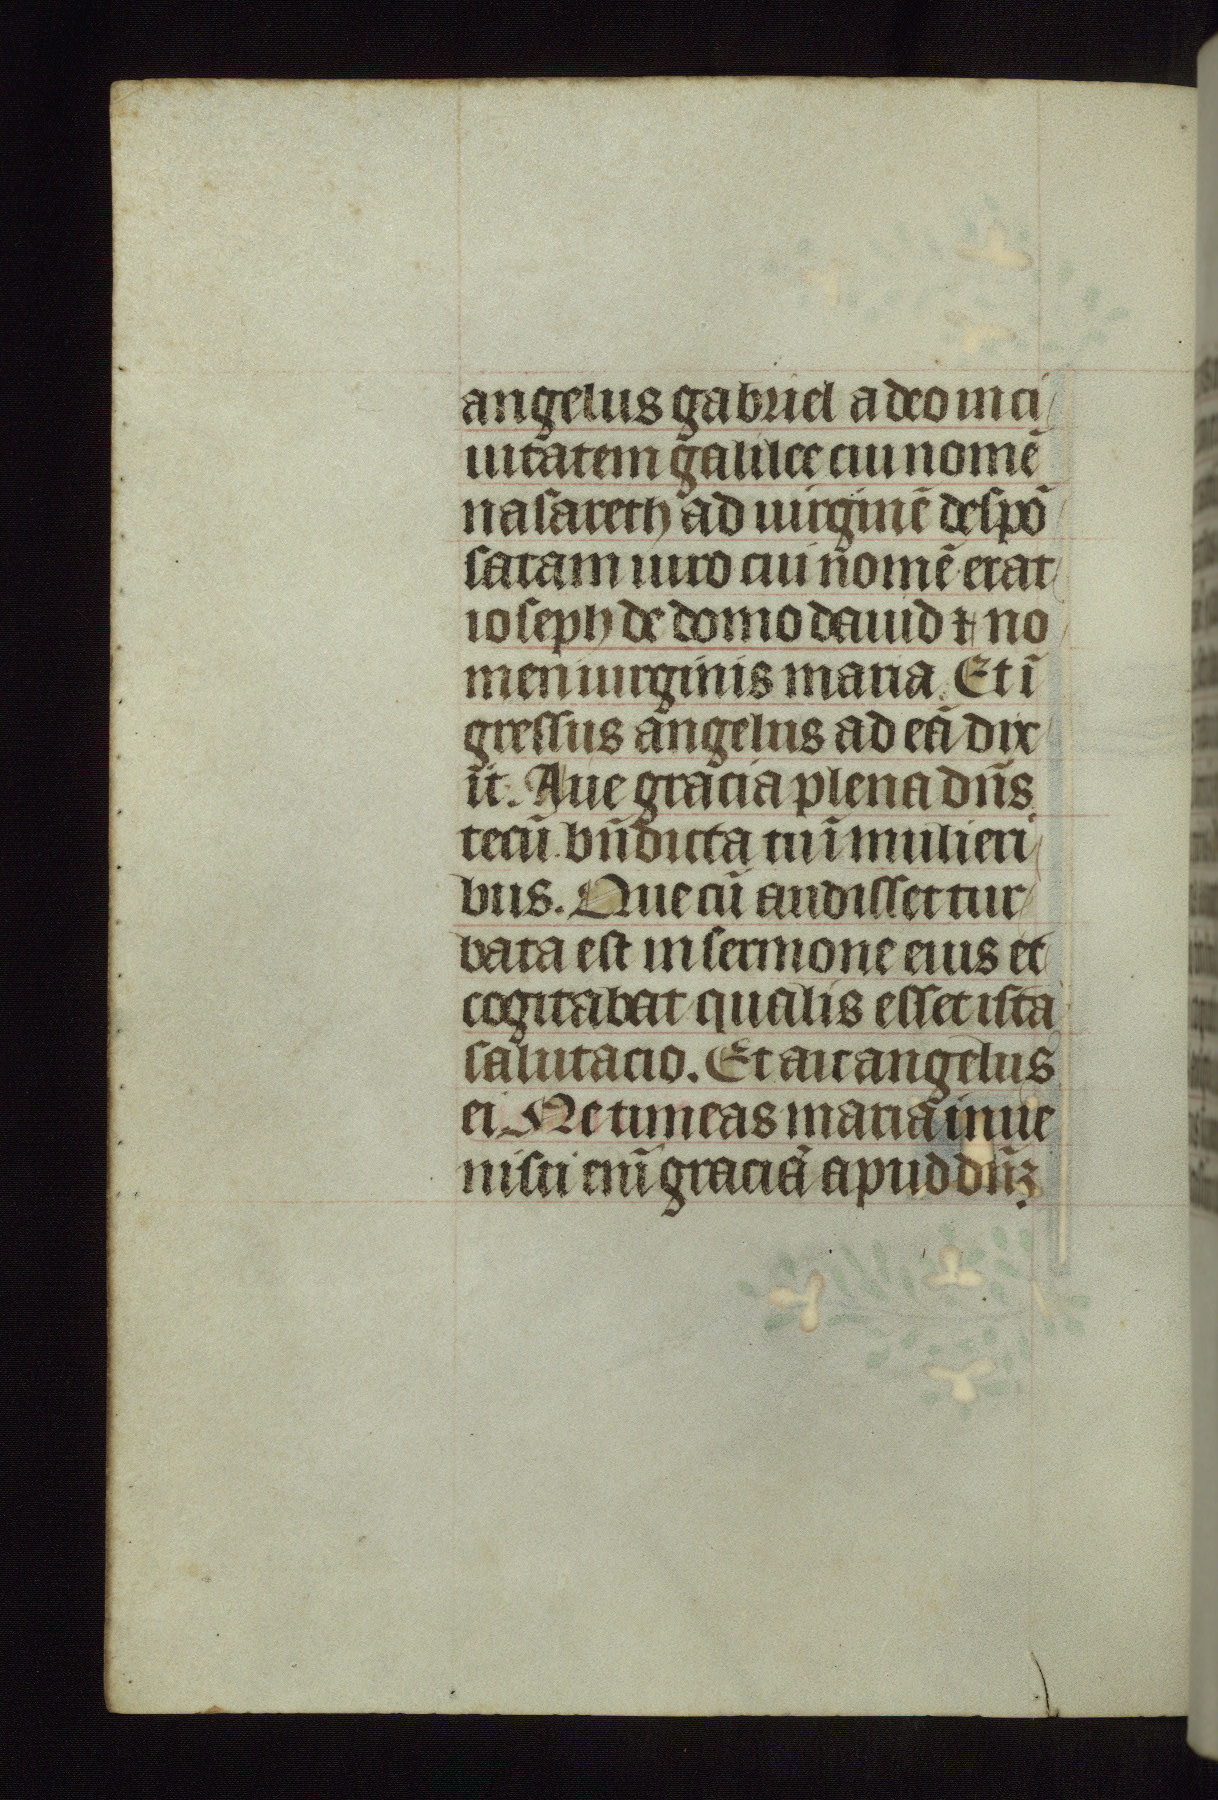 angelus gabriel a deo in ci
uitatem galilee cui nomē
nasareth ad uirginē despō
satam uiro cui nomē erat
ioseph de domo dauid ⁊ no
men uirginis maria. Et ī
gressus angelus ad eā dix
it. Aue gracia plena dn̄s
tecū bn̄dicta tu ī mulieri
bus. Que cū audisset tur
bata est in sermone eius et
cogitabat qualis esset ista
salutacio. Et ait angelus
ei. Ne timeas maria inue
nisti eni̅ graciā apud dn̄ꝫ